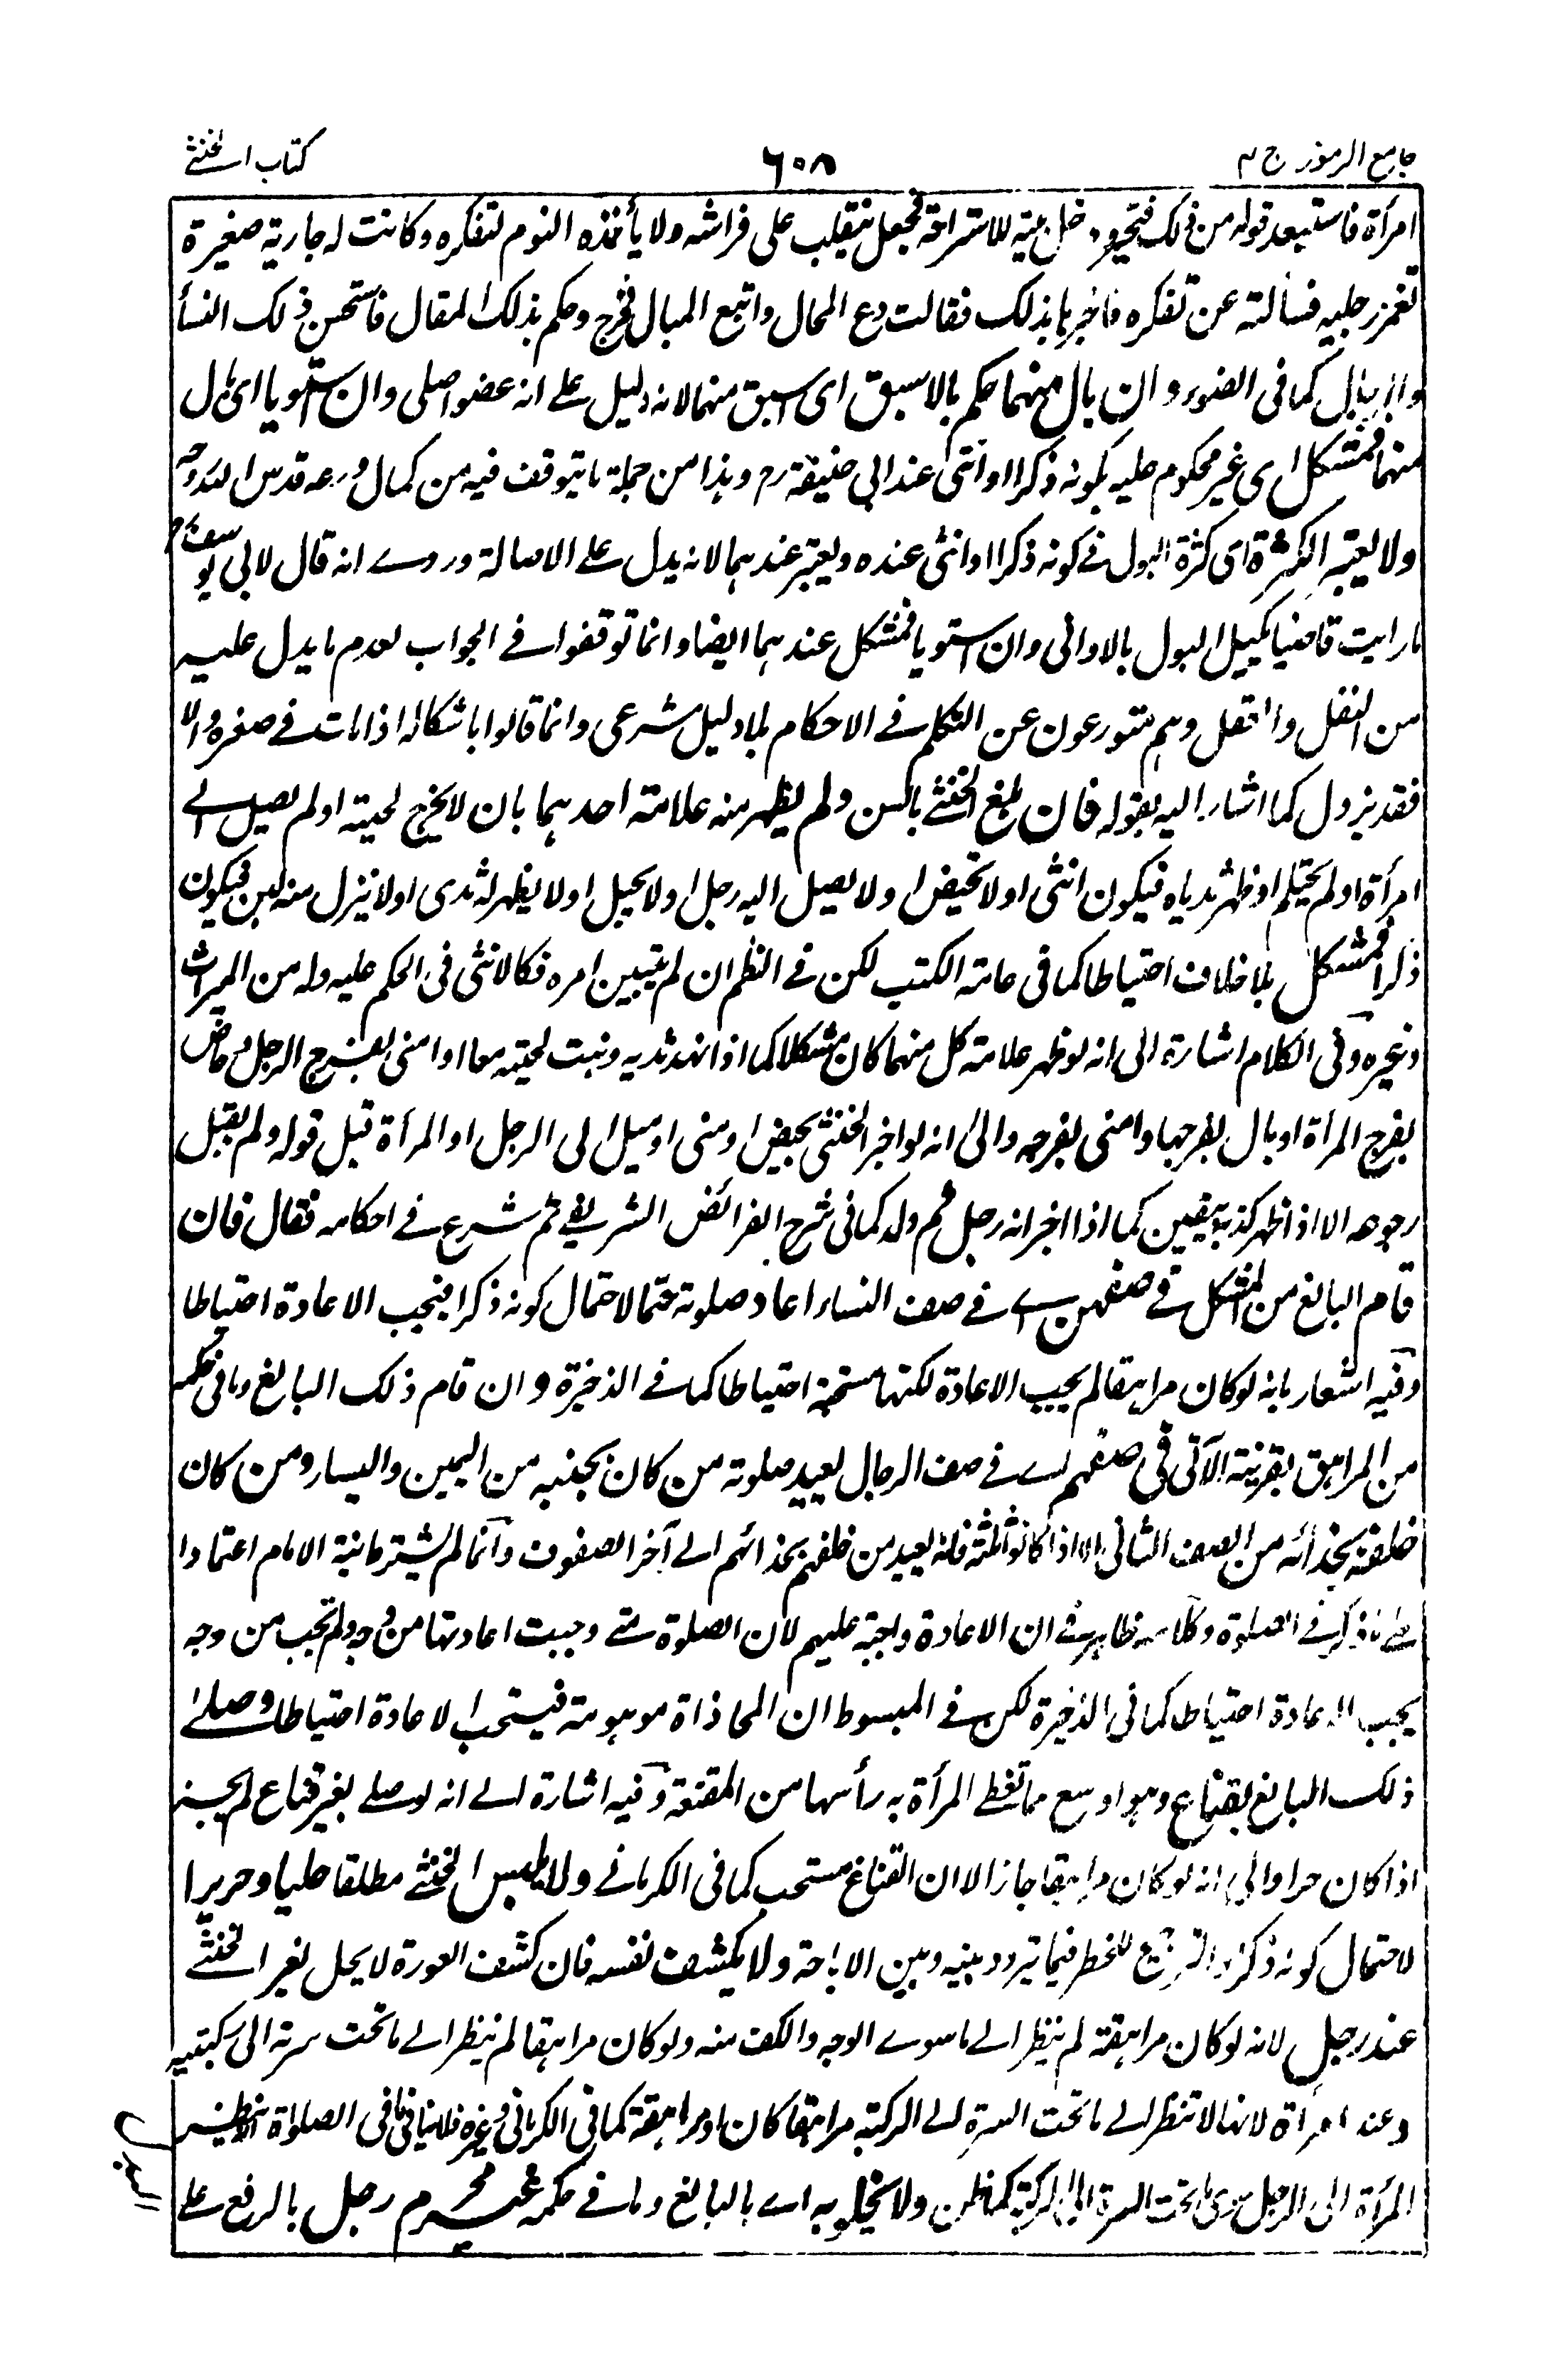 جامع الرموز ج ٣
٦٠٨
كتاب الخنثى
امرأة فاستبعد قوله من ذلك فتحير ودخل بيته للاستراحة فجعل يتقلب على فراشه ولا يأخذه النوم لتفكره وكانت له جارية صغيرة
تغمز رجليه فسألته عن تفكره فاخبرها بذلك فقالت دع المحال واتبع المبال فخرج وحكم بذلك المقال فاستحسن ذلك النسأ
والرجال كما فى الضوء وان بال منهما حكم بالاسبق اى اسبق منهما لانه دليل على انه عضو اصلى وان استويا اى بال
منهما فمشكل اى غير محكوم عليه بكونه ذكرا او انثى عند ابى حنيفة رح وهذا من جملة ما توقف فيه من كمال ورعه قدس الله روحه
ولا يعتبر الكثرة اى كثرة البول فى كونه ذكرا او انثى عنده ويعتبر عندهما لانه يدل على الاصالة وروى انه قال لابى يوسف رح
ما رايت قاضيا يكيل البول بالاوانى وان استويا فمشكل عندهما ايضا وانما توقفوا فى الجواب لعدم ما يدل عليه
من النقل والعقل وهم متورعون عن التكلم فى الاحكام بلا دليل شرعى وانما قالوا باشكاله اذا مات فى صغره والا
فقد يزول كما اشار اليه بقوله فان بلغ الخنثى بالسن ولم يظهر منه علامة احدهما بان لا يخرج لحيته او لم يصل الى
امرأة او لم يحتلم او ظهر ثدياه فيكون انثى او لا تحيض او لا يصل اليه رجل او لا يحبل او لا يظهر له ثدى او لا ينزل منه لبن فيكون
ذكرا فمشكل بلا خلاف احتياطا كما فى عامة الكتب لكن فى النظم ان لم يتبين امره فكالانثى فى الحكم عليه وله من الميراث
وغيره وفى الكلام اشارة الى انه لو ظهر علامة كل منهما كان مشكلا كما اذا نهد ثديه ونبت لحيته معا او امنى بفرج الرجل وحاض
بفرج المرأة او بال بفرجها وامنى بفرجه والى انه لو اخبر الخنثى بحيض او منى او ميل الى الرجل او المرأة قبل قوله ولم يقبل
رجوعه الا اذا ظهر كذبه بيقين كما اذا اخبر انه رجل ثم ولد كما فى شرح الفرائض الشريفى ثم شرع فى احكامه فقال فان
قام البالغ من المشكل فى صفهن اى فى صف النساء اعاد صلوته حتما لاحتمال كونه ذكرا فيجب الاعادة احتياطا
وفيه اشعار بانه لو كان مراهقا لم يجب الاعادة لكنها مستحبة احتياطا كما فى الذخيرة وان قام ذلك البالغ وما فى حكمه
من المراهق بقرينة الآتى فى صفهم اى فى صف الرجال يعيد صلوته من كان بجنبه من اليمين واليسار ومن كان
خلفه بحذائه من الصف الثانى الا اذا كانوا ثلثة فانه يعيد من خلفهم بحذائهم الى آخر الصفوف وانما لم يشترط نية الامام اعتمادا
على ما ذكر فى الصلوة وكلامه ظاهر فى ان الاعادة واجبة عليهم لان الصلوة متى وجبت اعادتها من وجه ولم تجب من وجه
يجب الاعادة احتياطا كما فى الذخيرة لكن فى المبسوط ان المحاذاة موهومة فيستحب الاعادة احتياطا وصلى
ذلك البالغ بقناع وهو اوسع مما تغطى المرأة به رأسها من المقنعة وفيه اشارة الى انه لو صلى بغير قناع لم يجز
اذا كان حرا والى انه لو كان مراهقا جاز الا ان القناع مستحب كما فى الكرمانى ولا يلبس الخنثى مطلقا حليا وحريرا
لاحتمال كونه ذكرا والترجيح للحظر فيما تردد بينه وبين الاباحة ولا يكشف نفسه فان كشف العورة لا يحل لغير الخنثى
عند رجل لانه لو كان مراهقة لم ينظر الى ما سوى الوجه والكف منه ولو كان مراهقا لم ينظر الى ما تحت سرته الى ركبتيه
وعند امرأة لانها لا تنظر الى ما تحت السرة الى الركبة مراهقا كان او مراهقة كما فى الكرمانى وغيره فلا ينافى ما فى الصلواة
المرأة الى الرجل سوى ما تحت السرة الى الركبة كما ظن ولا يخلو به اى بالبالغ وما فى حكمه غير محرم رجل بالرفع على